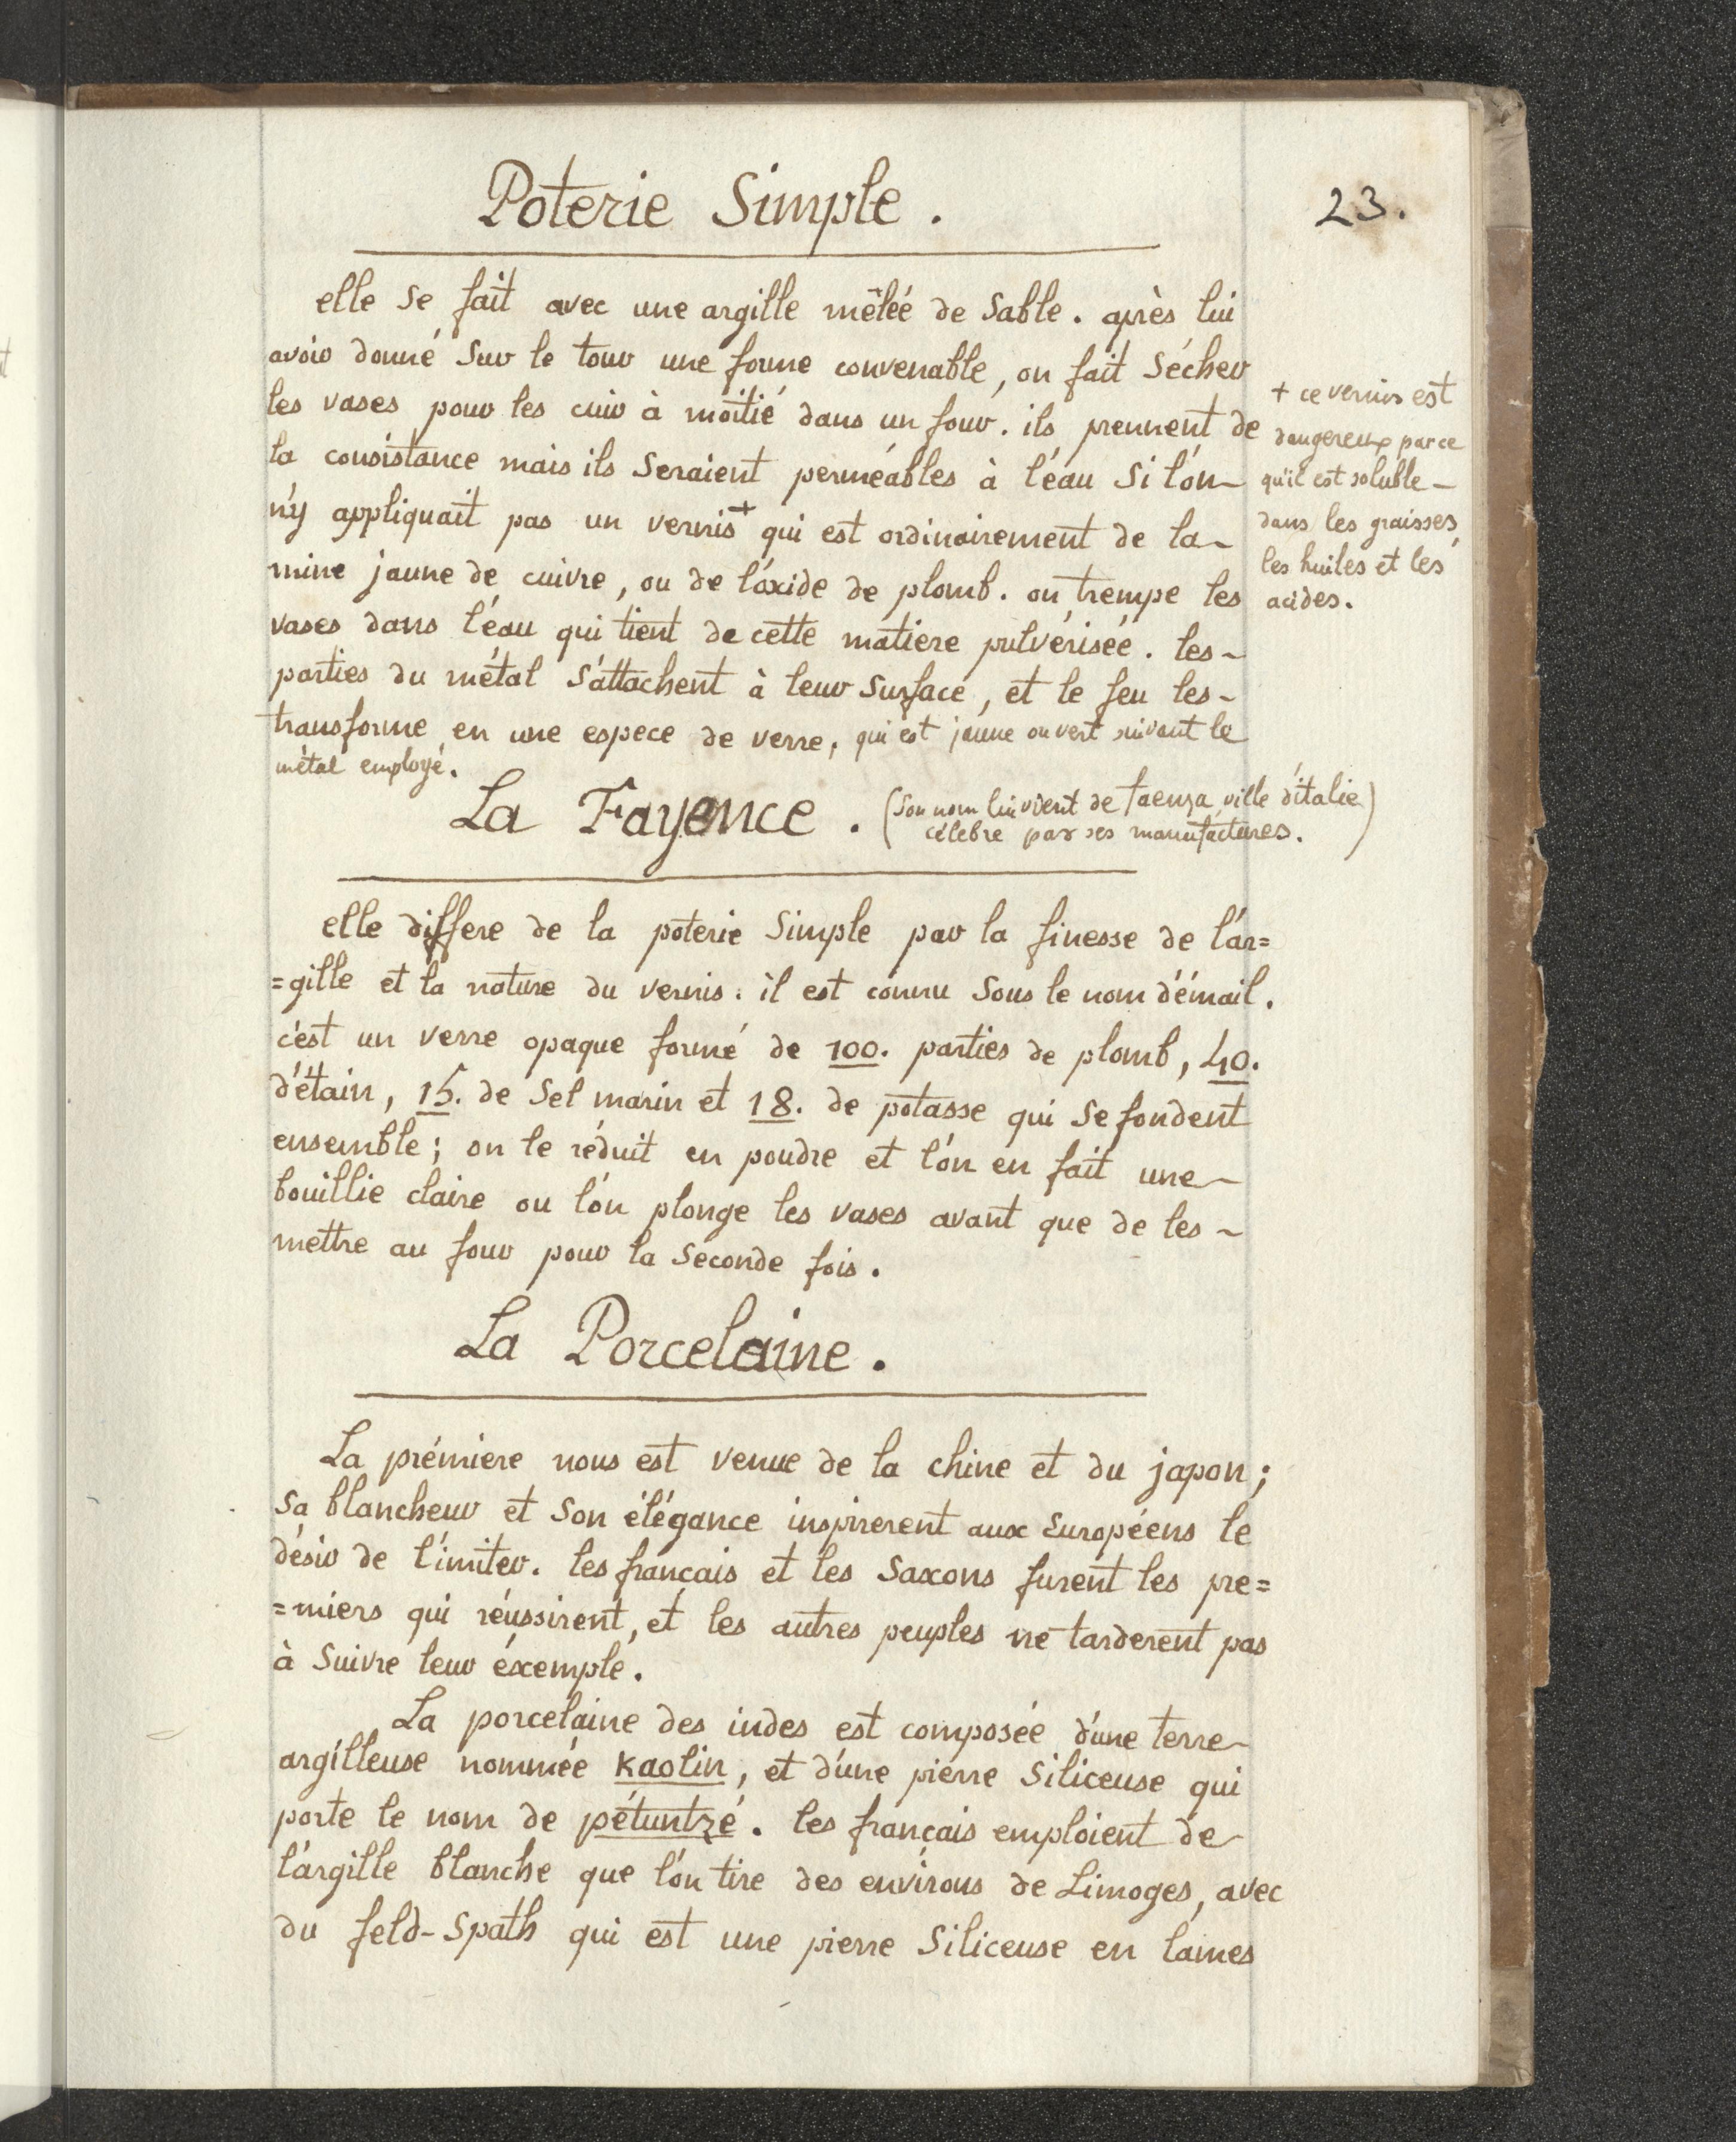 Poterie Simple.
23.
elle se fait avec une argille mêleé de Sable. après lui
avoir donné Sur le tour une forme convenable, on fait Sécher
les vases pour les cuir à moitié dans un four. ils prennent de
la consistance mais ils Seraient perméables à l'éau Si l'ón
n'y appliquait pas un vernis+ qui est ordinairement de la
mine jaune de cuivre, ou de l'óxide de plomb. on trempe les
vases dans l'éau qui tient de cette matiere pulvérisée. les
parties du métal s'áttachent à leur Surface, et le feu les
transforme en une espece de verre, qui est jaune ou vert suivant le
métal employé.
+ ce vernis est
dangereux parce
qu'il est soluble
dans les graisses,
les huiles et les
acides.
La Fayence. (Son nom lui vient de faenza ville d'italie
célebre par ses manufactures.)
elle differe de la poterie Simple par la finesse de l'ár=
=gille et la nature du vernis. il est connu Sous le nom d'émail.
c'ést un verre opaque formé de 100. parties de plomb, 40.
d'étain, 15. de Sel marin et 18. de potasse qui Se fondent
ensemble; on le réduit en poudre et l'ón en fait une
bouillie claire ou l'ón plonge les vases avant que de les
mettre au four pour la Seconde fois.
La Porcelaine.
La prémiere nous est venue de la chine et du japon;
Sa blancheur et Son élégance inspirerent aux Européens le
désir de l'imiter. les français et les Saxons furent les pre=
=miers qui réussirent, et les autres peuples ne tarderent pas
à Suivre leur éxemple.
La porcelaine des indes est composée d'úne terre
argilleuse nommée kaolin, et d'úne pierre Siliceuse qui
porte le nom de pétuntzé. les français emploient de
l'árgille blanche que l'ón tire des environs de Limoges, avec
du feld-Spath qui est une pierre Siliceuse en lames